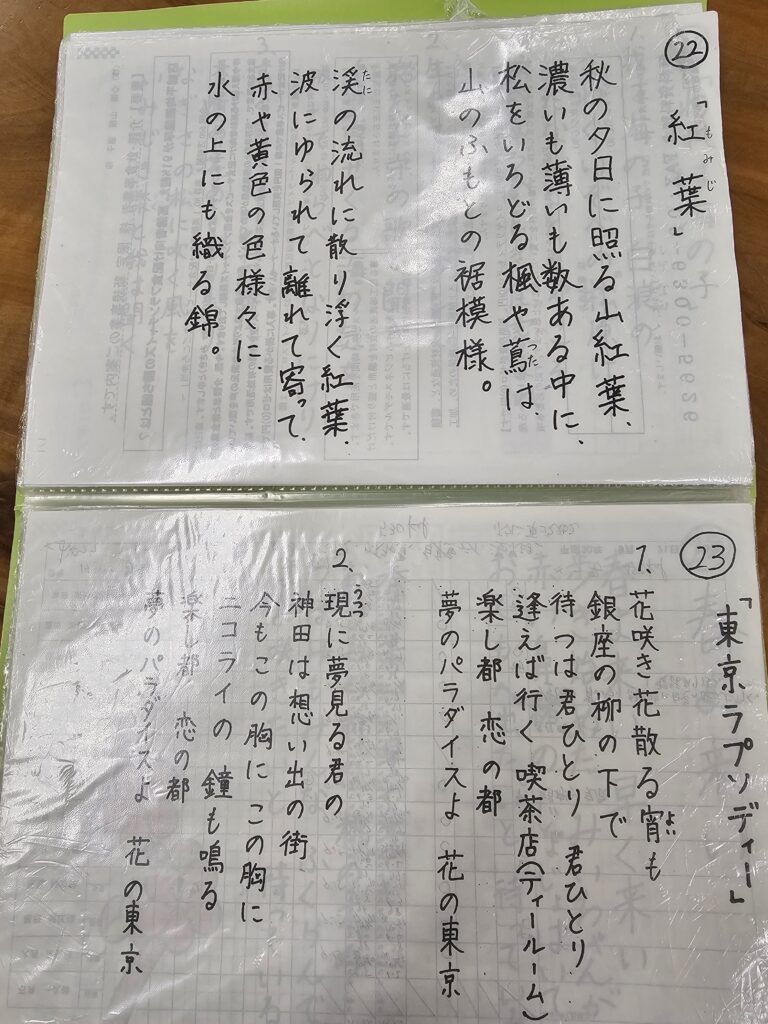 ㉒
「紅葉」
もみじ
秋の夕日に照る山紅葉、
濃いも薄いも数ある中に、
松をいろどる楓や蔦は、
つた
山のふもとの裾模様。
渓の流れに散り浮く紅葉、
たに
波にゆられて離れて寄って、
赤や黄色の色様々に、
水の上にも織る錦。
㉓
「東京ラプソディー」
1、花咲き花散る宵も
よい
銀座の柳の下で
待つは君ひとり 君ひとり
逢えば行く 喫茶店(ティールーム)
楽し都 恋の都
夢のパラダイスよ 花の東京
2、現に夢見る君の
うつつ
神田は想い出の街
今もこの胸に この胸に
ニコライの 鐘も鳴る
楽し都 恋の都
夢のパラダイスよ 花の東京